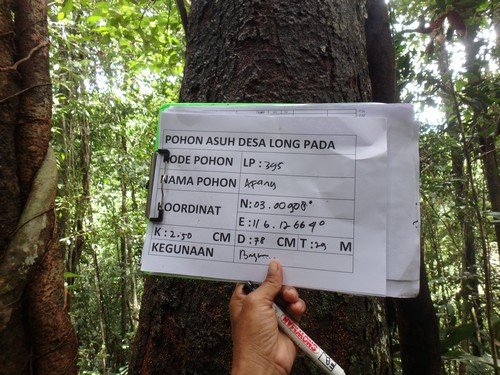 POHON ASUH DESA LONG PADA
KODE POHON LP : 395
NAMA POHON Apang
KOORDINAT N : 03.00908°
E : 116.12664°
K : 2.50 CM D : 78 CM T : 29 M
KEGUNAAN
SNOWMAN